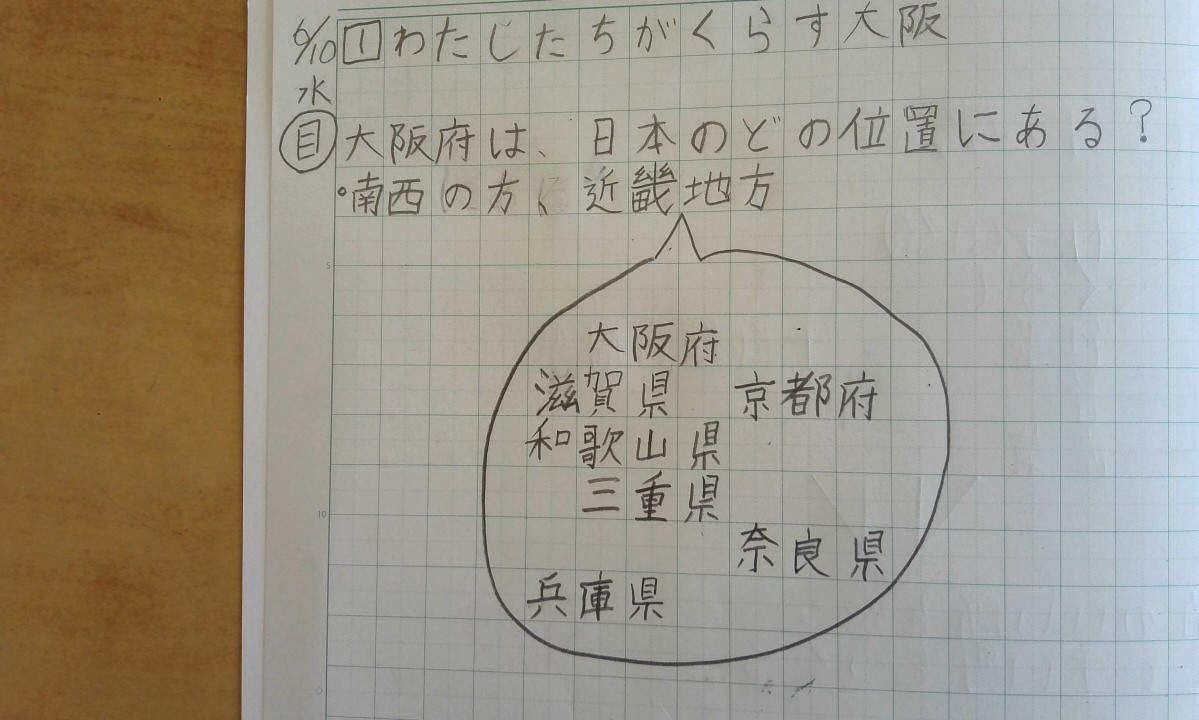 6/10 1 わたしたちがくらす大阪
水
目 大阪府は、日本のどの位置にある？
・南西の方、近畿地方
大阪府
滋賀県 京都府
和歌山県
三重県
奈良県
兵庫県
5
10